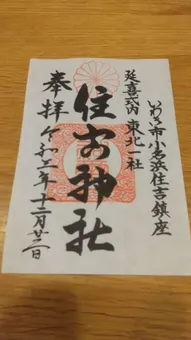 いわき市小名浜住吉鎮座
延喜式内 東北一社
住吉神社
奉拝 令和二年十二月廿三日